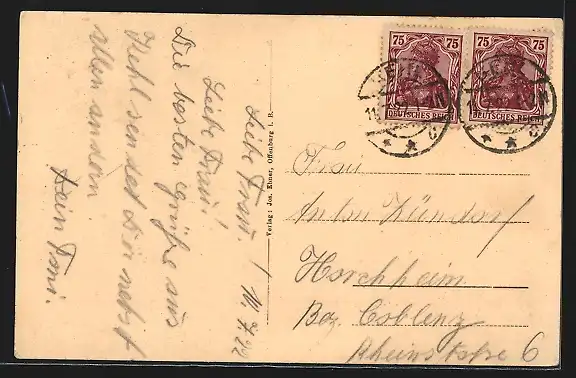 Liebe Frau!
Die besten Grüße aus
Kehl sendet Dir nebst
allen andern
Dein Toni.
Verlag: Jos. Ebner, Offenburg i. B.
75 75
DEUTSCHES REICH
75 75
DEUTSCHES REICH
Frau
Anton Kündorf
Horchheim
Bez. Coblenz
Rheinstrfse 6